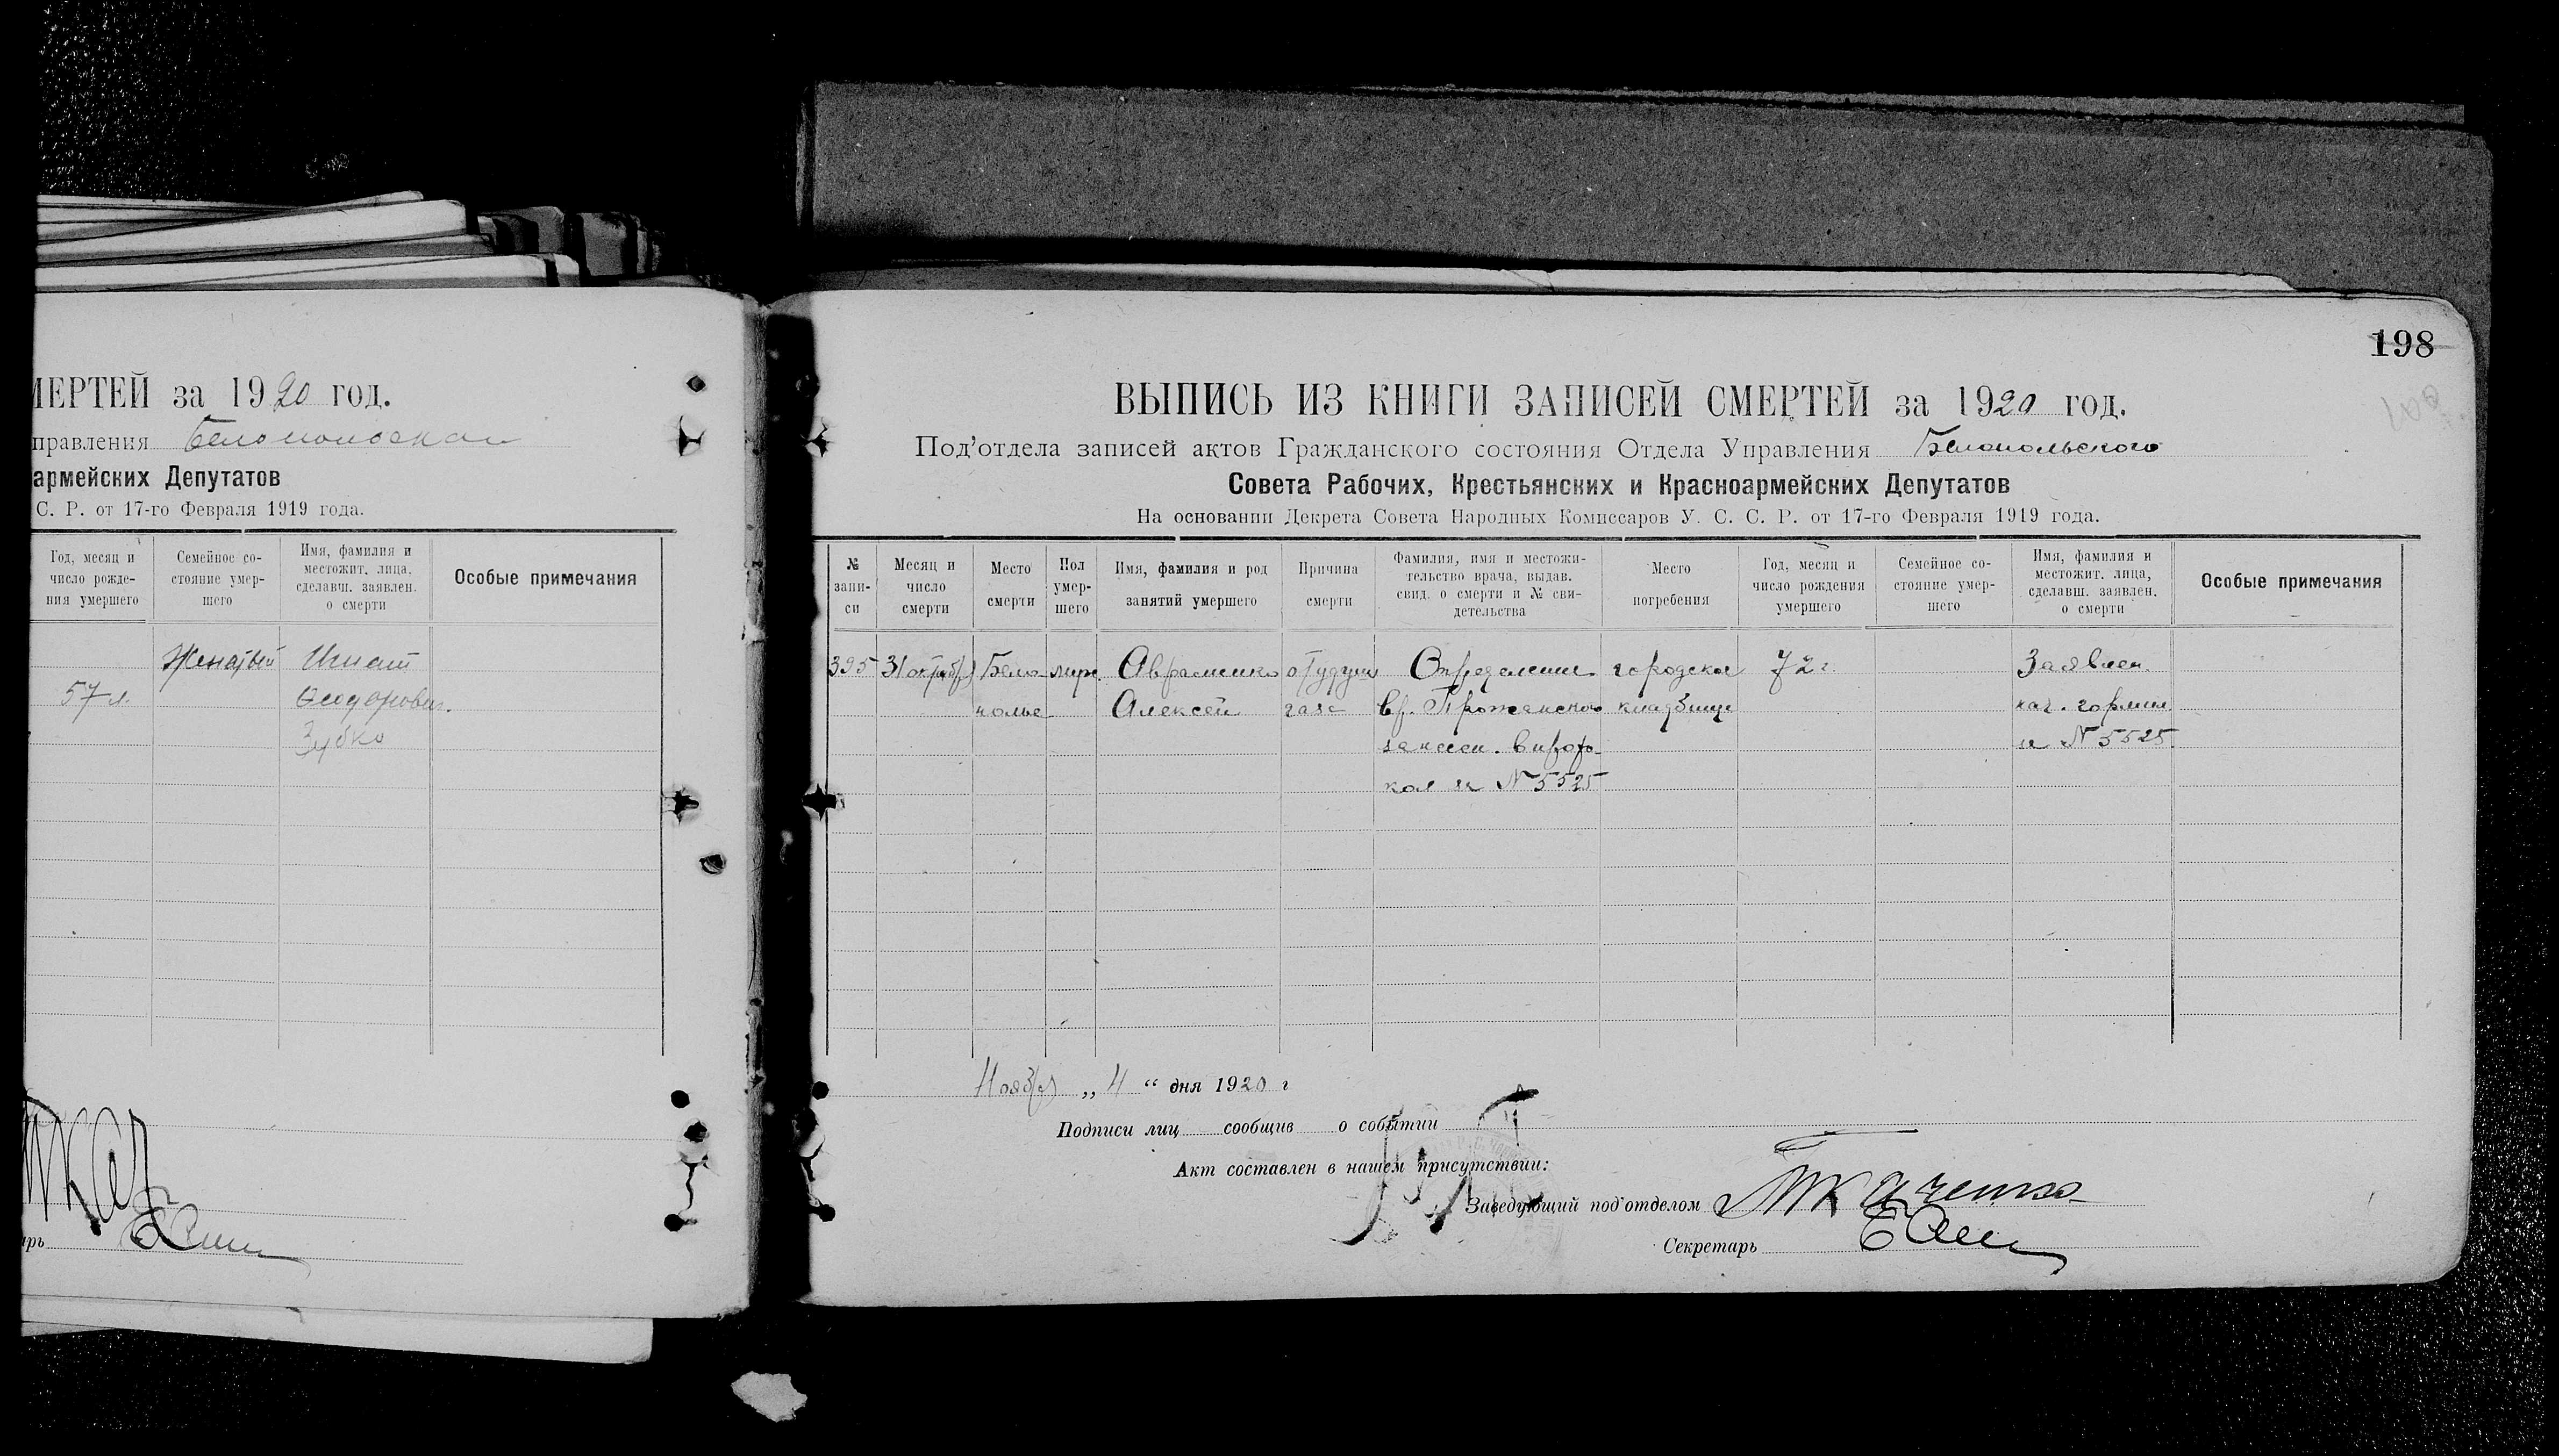 МЕРТЕЙ за 1920 год.
правления
армейских Депутатов
С. Р. от 17-го Февраля 1919 года.
Год, месяц и число рождения умершего
Семейное со-
стояние умер-
шего
Имя, фамилия и
местожит. лица,
сделавш. заявлен.
о смерти
Особые примечания
Женатый Игнат
57 л. Феодорович.
Зубко
арь
198
ВЫПИСЬ ИЗ КНИГИ ЗАПИСЕЙ СМЕРТЕЙ за 1920 год.
Под'отдела записей актов Гражданского состояния Отдела Управления Белопольского
Совета Рабочих, Крестьянских и Красноармейских Депутатов
На основании Декрета Совета Народных Комиссаров У. С. С. Р. от 17-го Февраля 1919 года.
№
запи-
си
Месяц и
число
смерти
Место
смерти
Пол
умер-
шего
Имя, фамилия и род
занятий умершего
Причина
смерти
Фамилия, имя и местожи-
тельство врача, выдав.
свид. о смерти и № сви-
детельства
Место
погребения
Год, месяц и
число рождения
умершего
Семейное со-
стояние умер-
шего
Имя, фамилия и
местожит. лица,
сделавш. заявлен.
о смерти
Особые примечания
395 31 октября Бело- муж. Авраменко Определение городское 72 г. Заявлен.
полье Алексей газа вр. кладбище нач.
за № 5525
за № 5525
Ноября „ 4 “ дня 1920 г
Подписи лиц сообщив о событии
Акт составлен в нашем присутствии:
Заведующий под'отделом Ткаченко
Секретарь